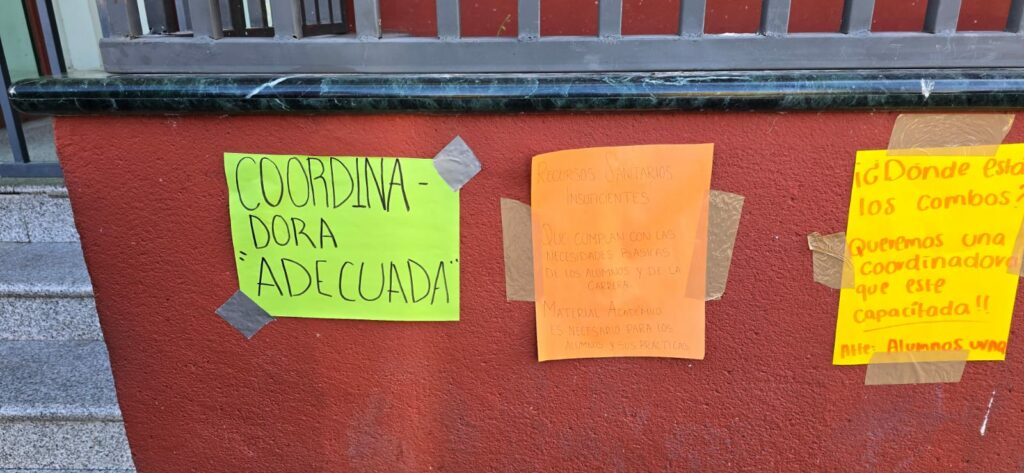 COORDINA-
DORA
"ADECUADA"
RECURSOS SANITARIOS
INSUFICIENTES
QUE CUMPLAN CON LAS
NECESIDADES BASICAS
DE LOS ALUMNOS Y DE LA
CARRERA.
MATERIAL ACADEMICO
ES NECESARIO PARA LOS
ALUMNOS Y SUS PRACTICAS
¡¿Dónde esta
los combos?
Queremos una
coordinadora
que este
capacitada!!
Atte: Alumnos